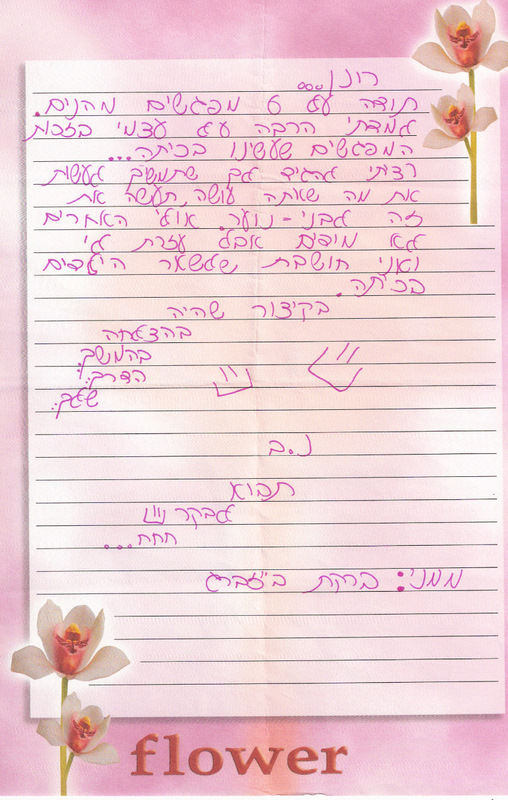 רונן...
תודה על 6 מפגשים מהנים.
למדתי הרבה על עצמי בזכות
המפגשים שעשינו בכיתה...
רציתי להגיד לך שתמשיך לעשות
את מה שאתה עושה, תעשה את
זה לבני-נוער. אולי האחרים
לא מופים אבל עזרת לי
ואני חושבת שלשאר הילדים
בכיתה.
בקיצור שהיה
בהצלחה
בהמשך
הדרך
שלך.
נ.ב
תבוא
לבקר
חחח...
ממני: ברקת
flower